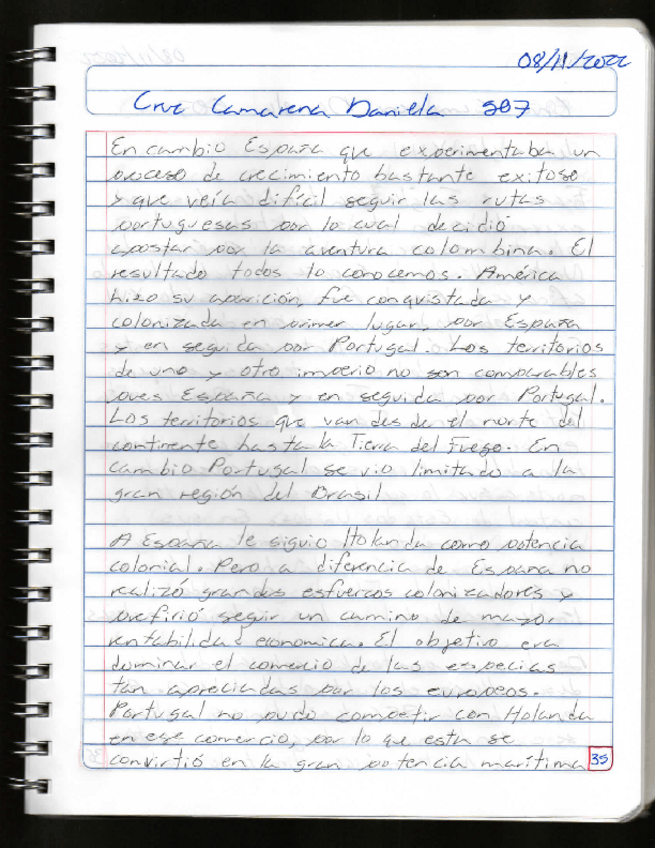 08/11/2022
Cruz Camarena Daniela 507
En cambio España que experimentaba un
proceso de crecimiento bastante exitoso
y que veía difícil seguir las rutas
portuguesas por lo cual decidió
apostar por la aventura colombina. El
resultado todos lo conocemos. América
hizo su aparición, fue conquistada y
colonizada en primer lugar, por España
y en seguida por Portugal. Los territorios
de uno y otro imperio no son comparables
pues España y en seguida por Portugal.
Los territorios que van desde el norte del
continente hasta la Tierra del Fuego. En
cambio Portugal se vio limitado a la
gran región del Brasil
A España le siguio Holanda como potencia
colonial. Pero a diferencia de España no
realizó grandes esfuerzos colonizadores y
prefirió seguir un camino de mayor
rentabilidad economica. El objetivo era
dominar el comercio de las especias
tan apreciadas por los europeos.
Portugal no pudo competir con Holanda
en ese comercio, por lo que esta se
convirtió en la gran potencia marítima
35